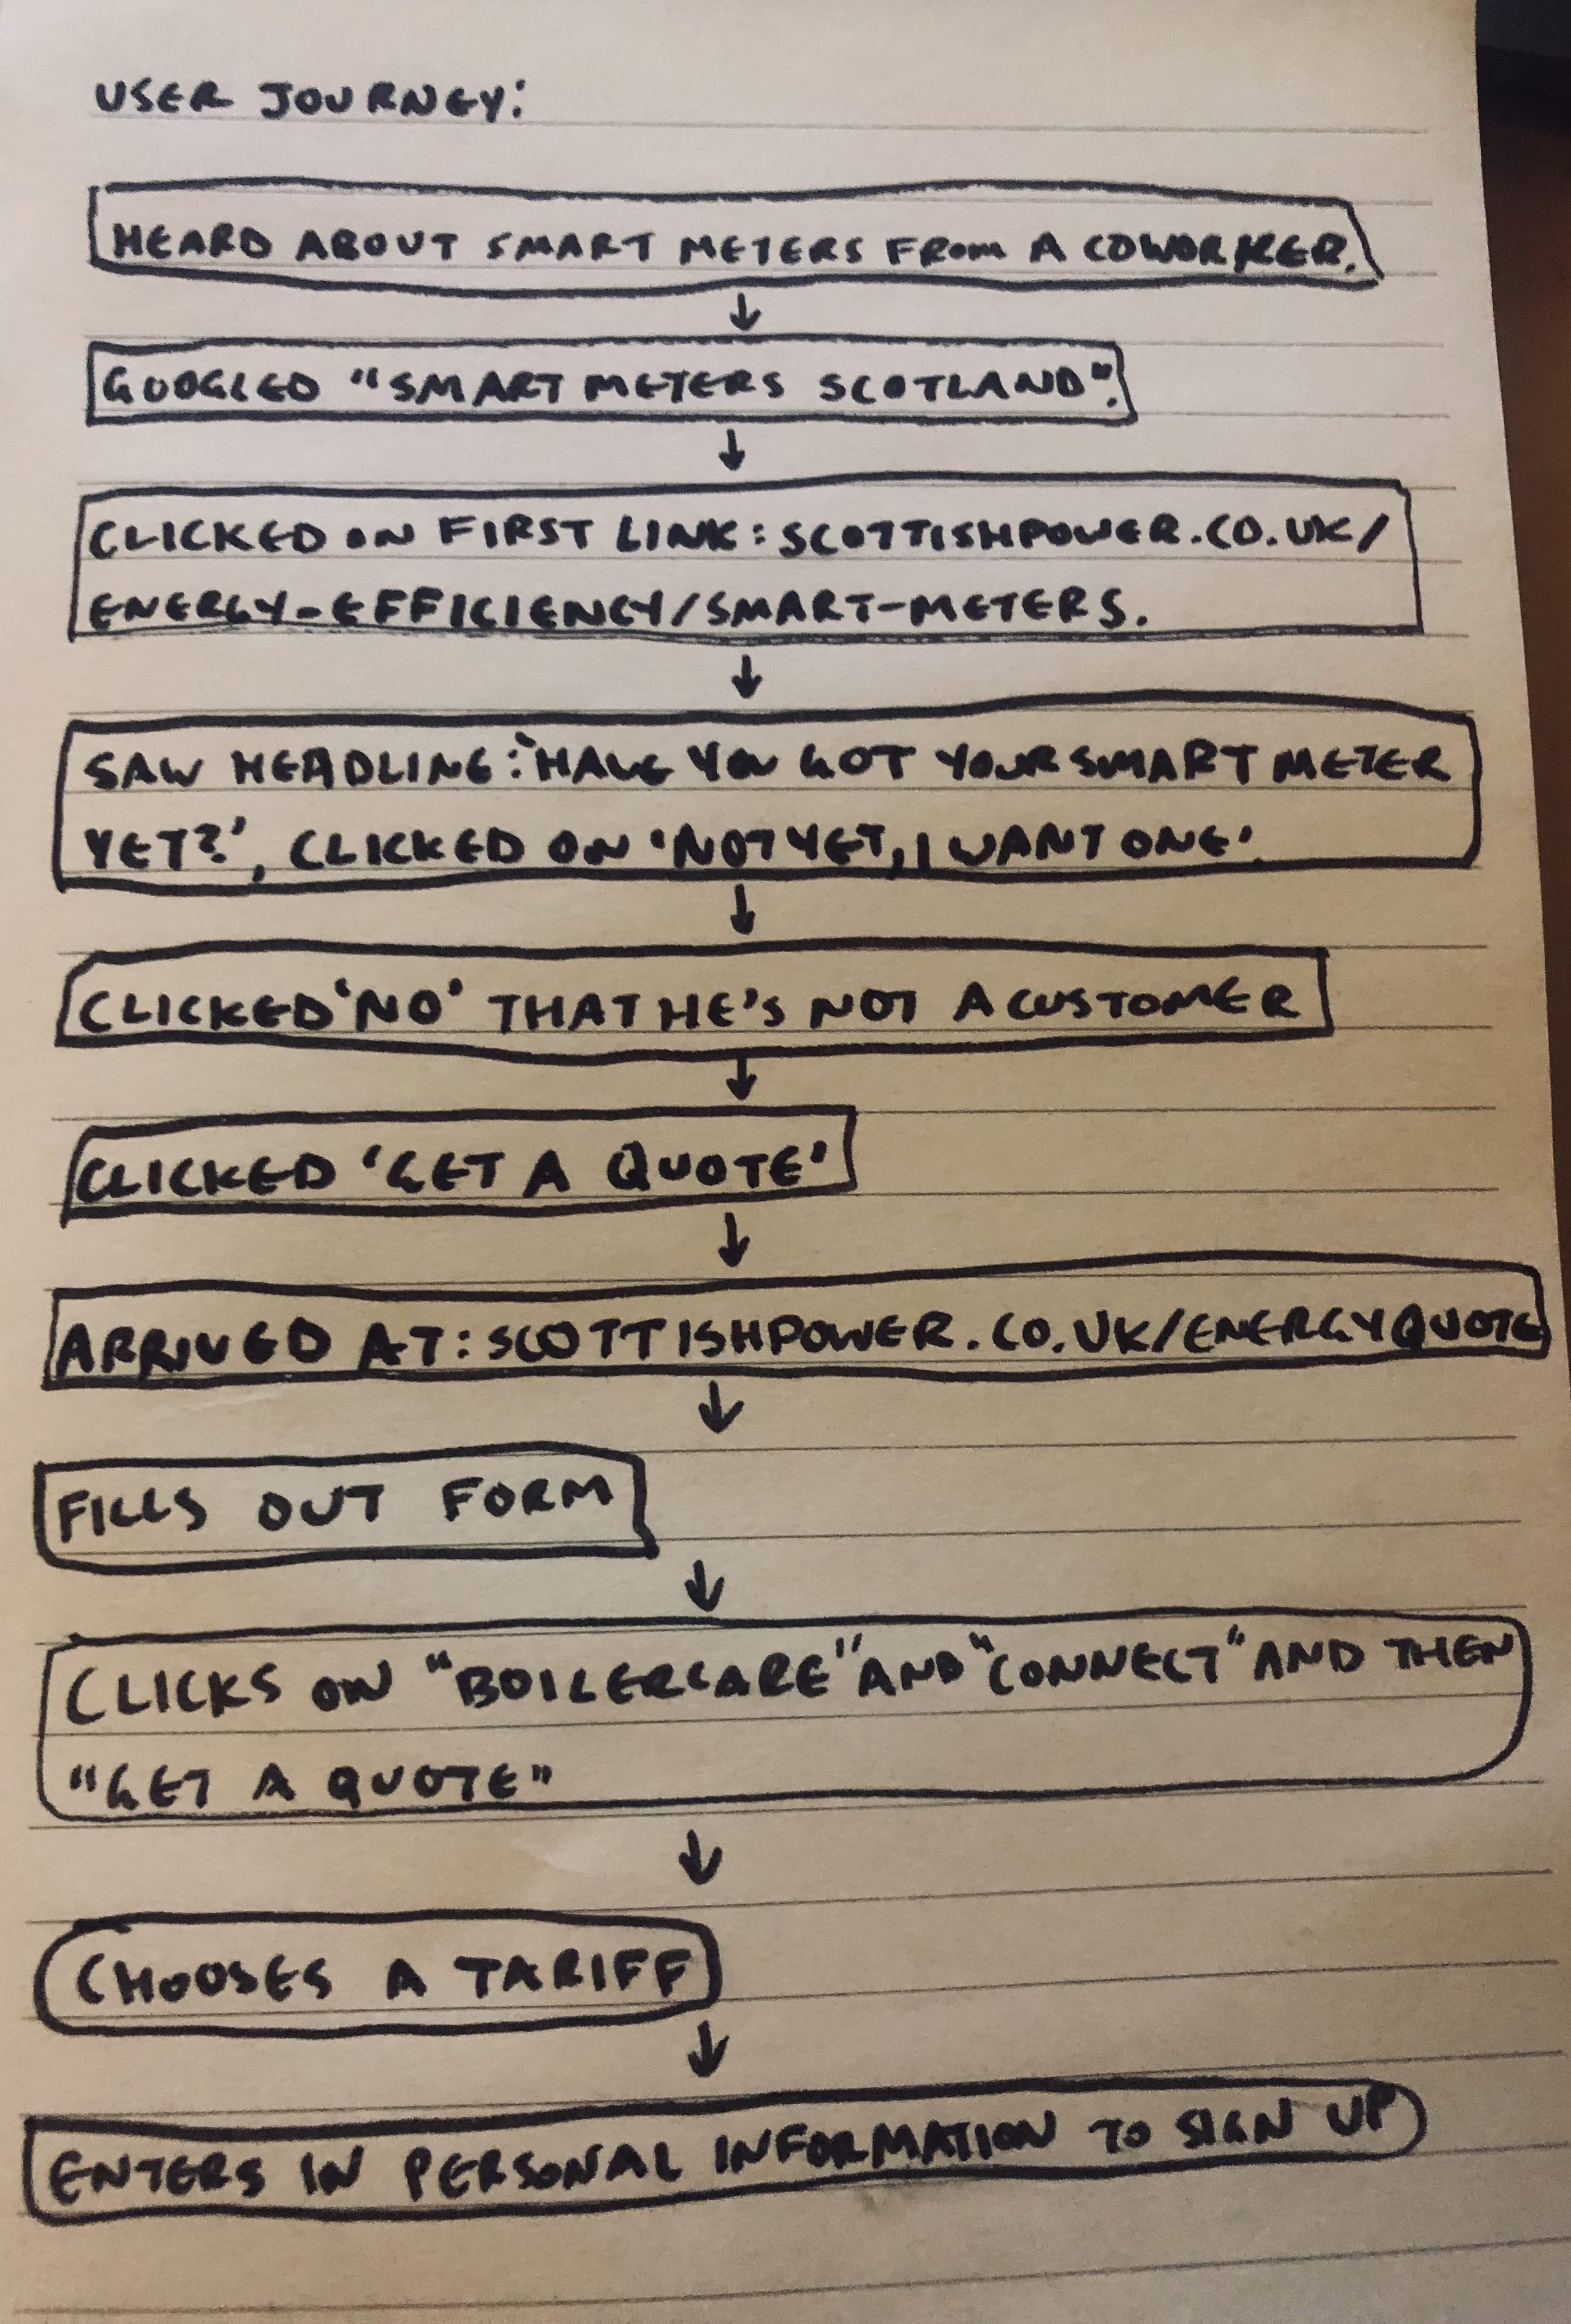 USER JOURNEY:
HEARD ABOUT SMART METERS FROM A COWORKER.
GOOGLED "SMART METERS SCOTLAND".
CLICKED ON FIRST LINK: SCOTTISHPOWER.CO.UK/
ENERGY-EFFICIENCY/SMART-METERS.
SAW HEADLINE: 'HAVE YOU GOT YOUR SMART METER
YET?', CLICKED ON 'NOT YET, I WANT ONE'.
CLICKED 'NO' THAT HE'S NOT A CUSTOMER
CLICKED 'GET A QUOTE'
ARRIVED AT: SCOTTISHPOWER.CO.UK/ENERGYQUOTE
FILLS OUT FORM
CLICKS ON "BOILERCARE" AND "CONNECT" AND THEN
"GET A QUOTE"
CHOOSES A TARIFF
ENTERS IN PERSONAL INFORMATION TO SIGN UP